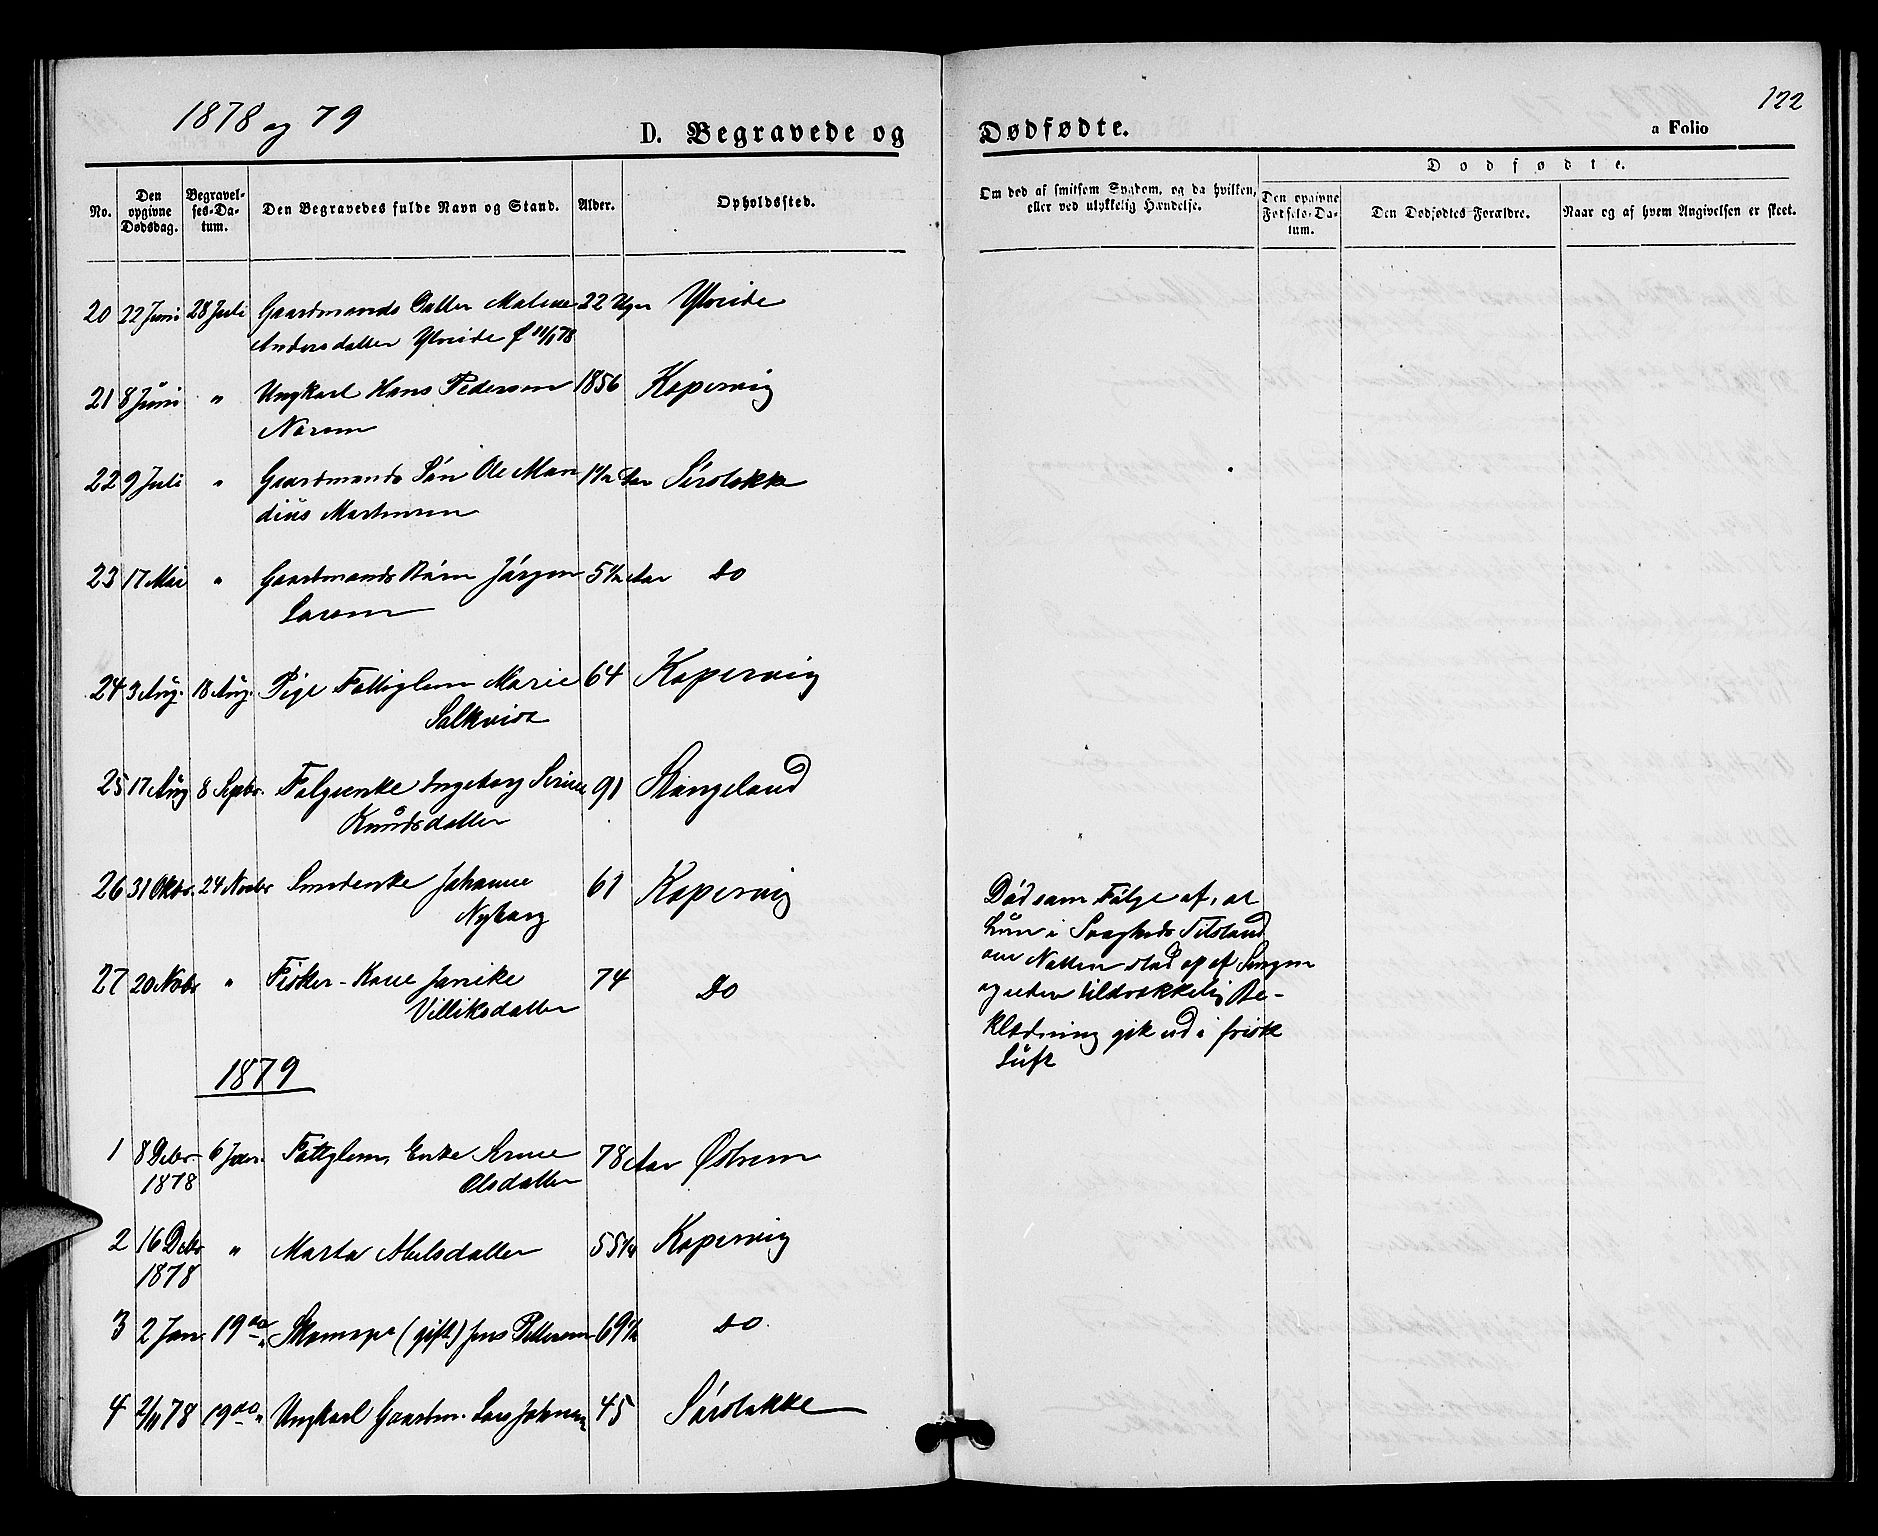 1878 og 79
122
D. Begravede og Dødfødte.
a Folio
No.
Den opgivne Dødsdag.
Begravelses-Datum.
Den Begravedes fulde Navn og Stand.
Alder.
Opholdssted.
Om død af smitsom Sygdom, og da hvilken, eller ved ulykkelig Hændelse.
Dødfødte.
Den opgivne Fødsels-Datum.
Den Dødfødtes Forældre.
Naar og af hvem Angivelsen er skeet.
20 22 Juni 28 Juli Gaardmands Datter Malene 22 Uger
Andersdatter
21 8 Juni " Ungkarl Hans Pedersen 1856 Kopervig
22 9 Juli " Gaardmands Søn Ole Man 1½ Aar Sørstokke
dius Martinsen
23 17 Mai " Gaardmands Barn Jørgen 5½ Aar do
Larsen
24 3 Aug. 18 Aug. Pige Fattiglem Marie 64 Kopervig
25 17 Aug 8 Septbr. Ingeborg Serine 91 Stangeland
Knudsdatter
26 31 Oktbr. 24 Novbr Johanne 61 Kopervig
Nyborg
27 20 Novbr " Fisker-Kone Janike 74 do
Villiksdatter
Død som Følge af, at
hun i Svagheds Tilstand
om Natten stod op af Sengen
og uden tilstrækkelig Be-
klædning gik ud i friske
Luft
1879
1 8 Debr. 6 Jan. Fattiglem, Enke Serine 78 Aar Østrem
1878 Olsdatter
2 16 Debr " Marta Abelsdatter 55½ Kopervig
1878
3 2 Jan. 19de " (gift) Jens Pettersen 69½ do
4 2/11 78 19de " Ungkarl Gaardm. Lars 45 Sørstokke